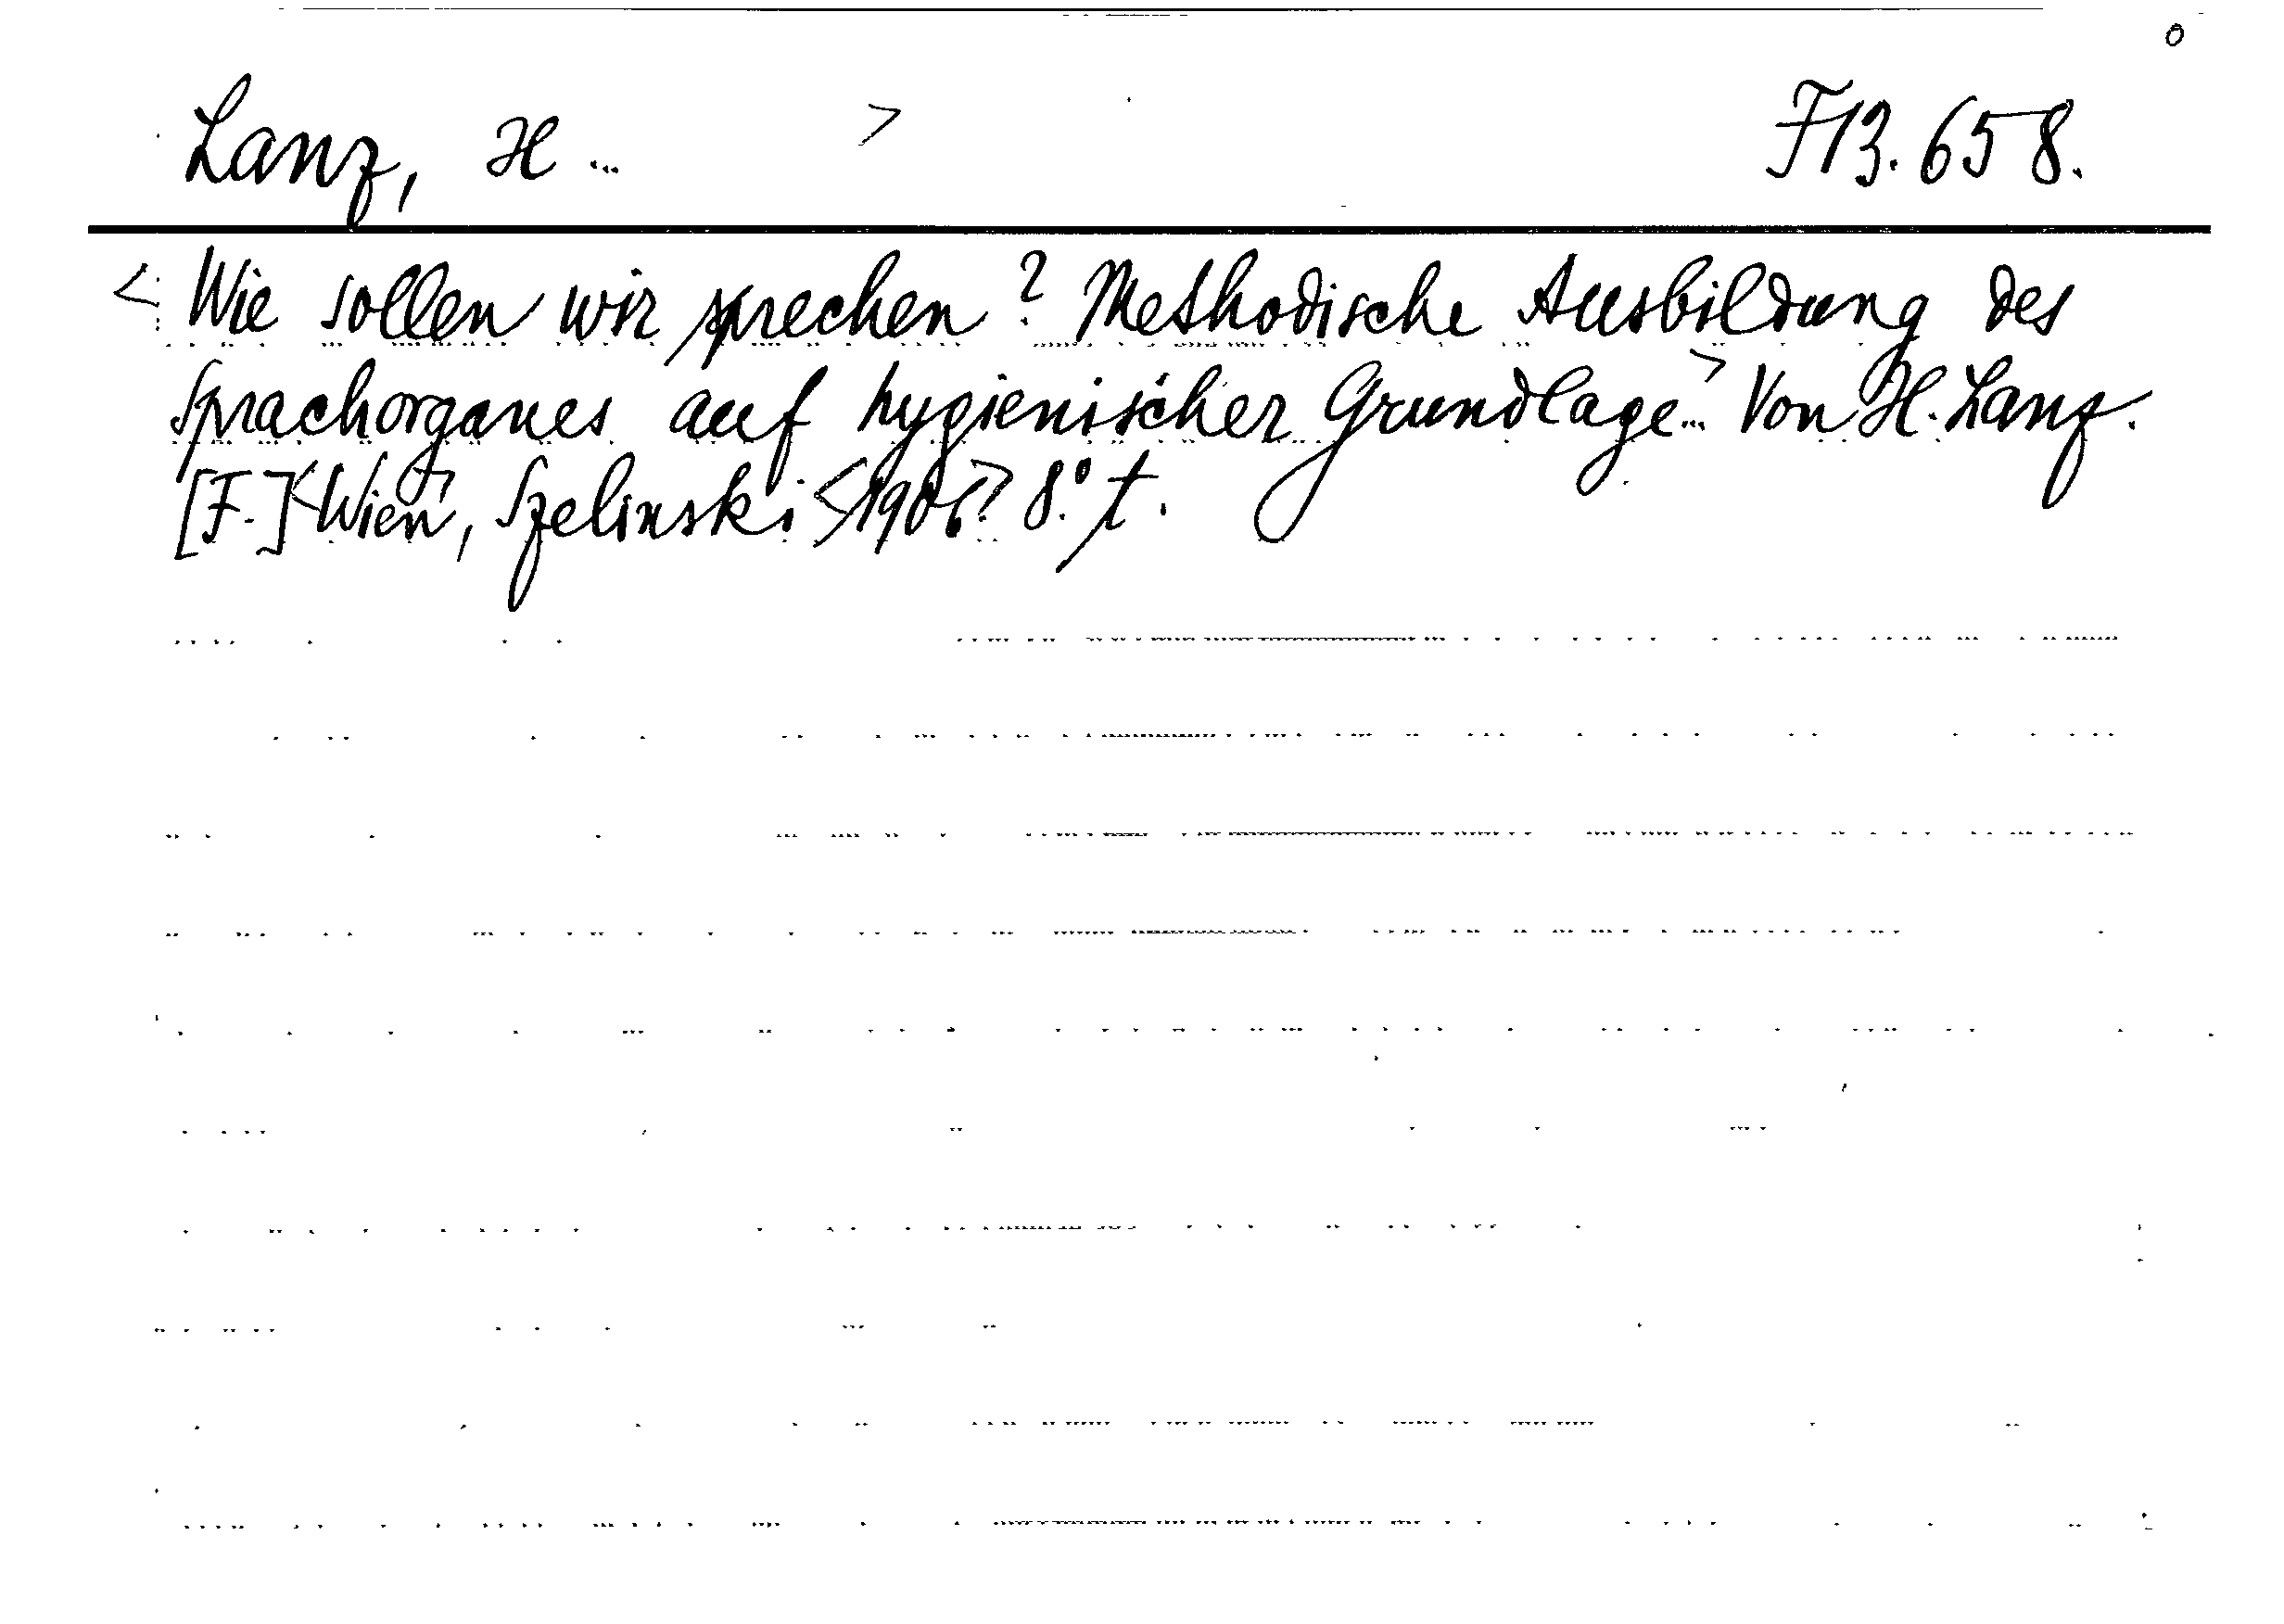 Lanz, H ... > F13.658.
< Wie sollen wir sprechen? Methodische Ausbildung des
Sprachorganes auf hygienischer Grundlage..> Von H. Lanz.
[F.] <Wien>, Szelinski <1906> 8° t.